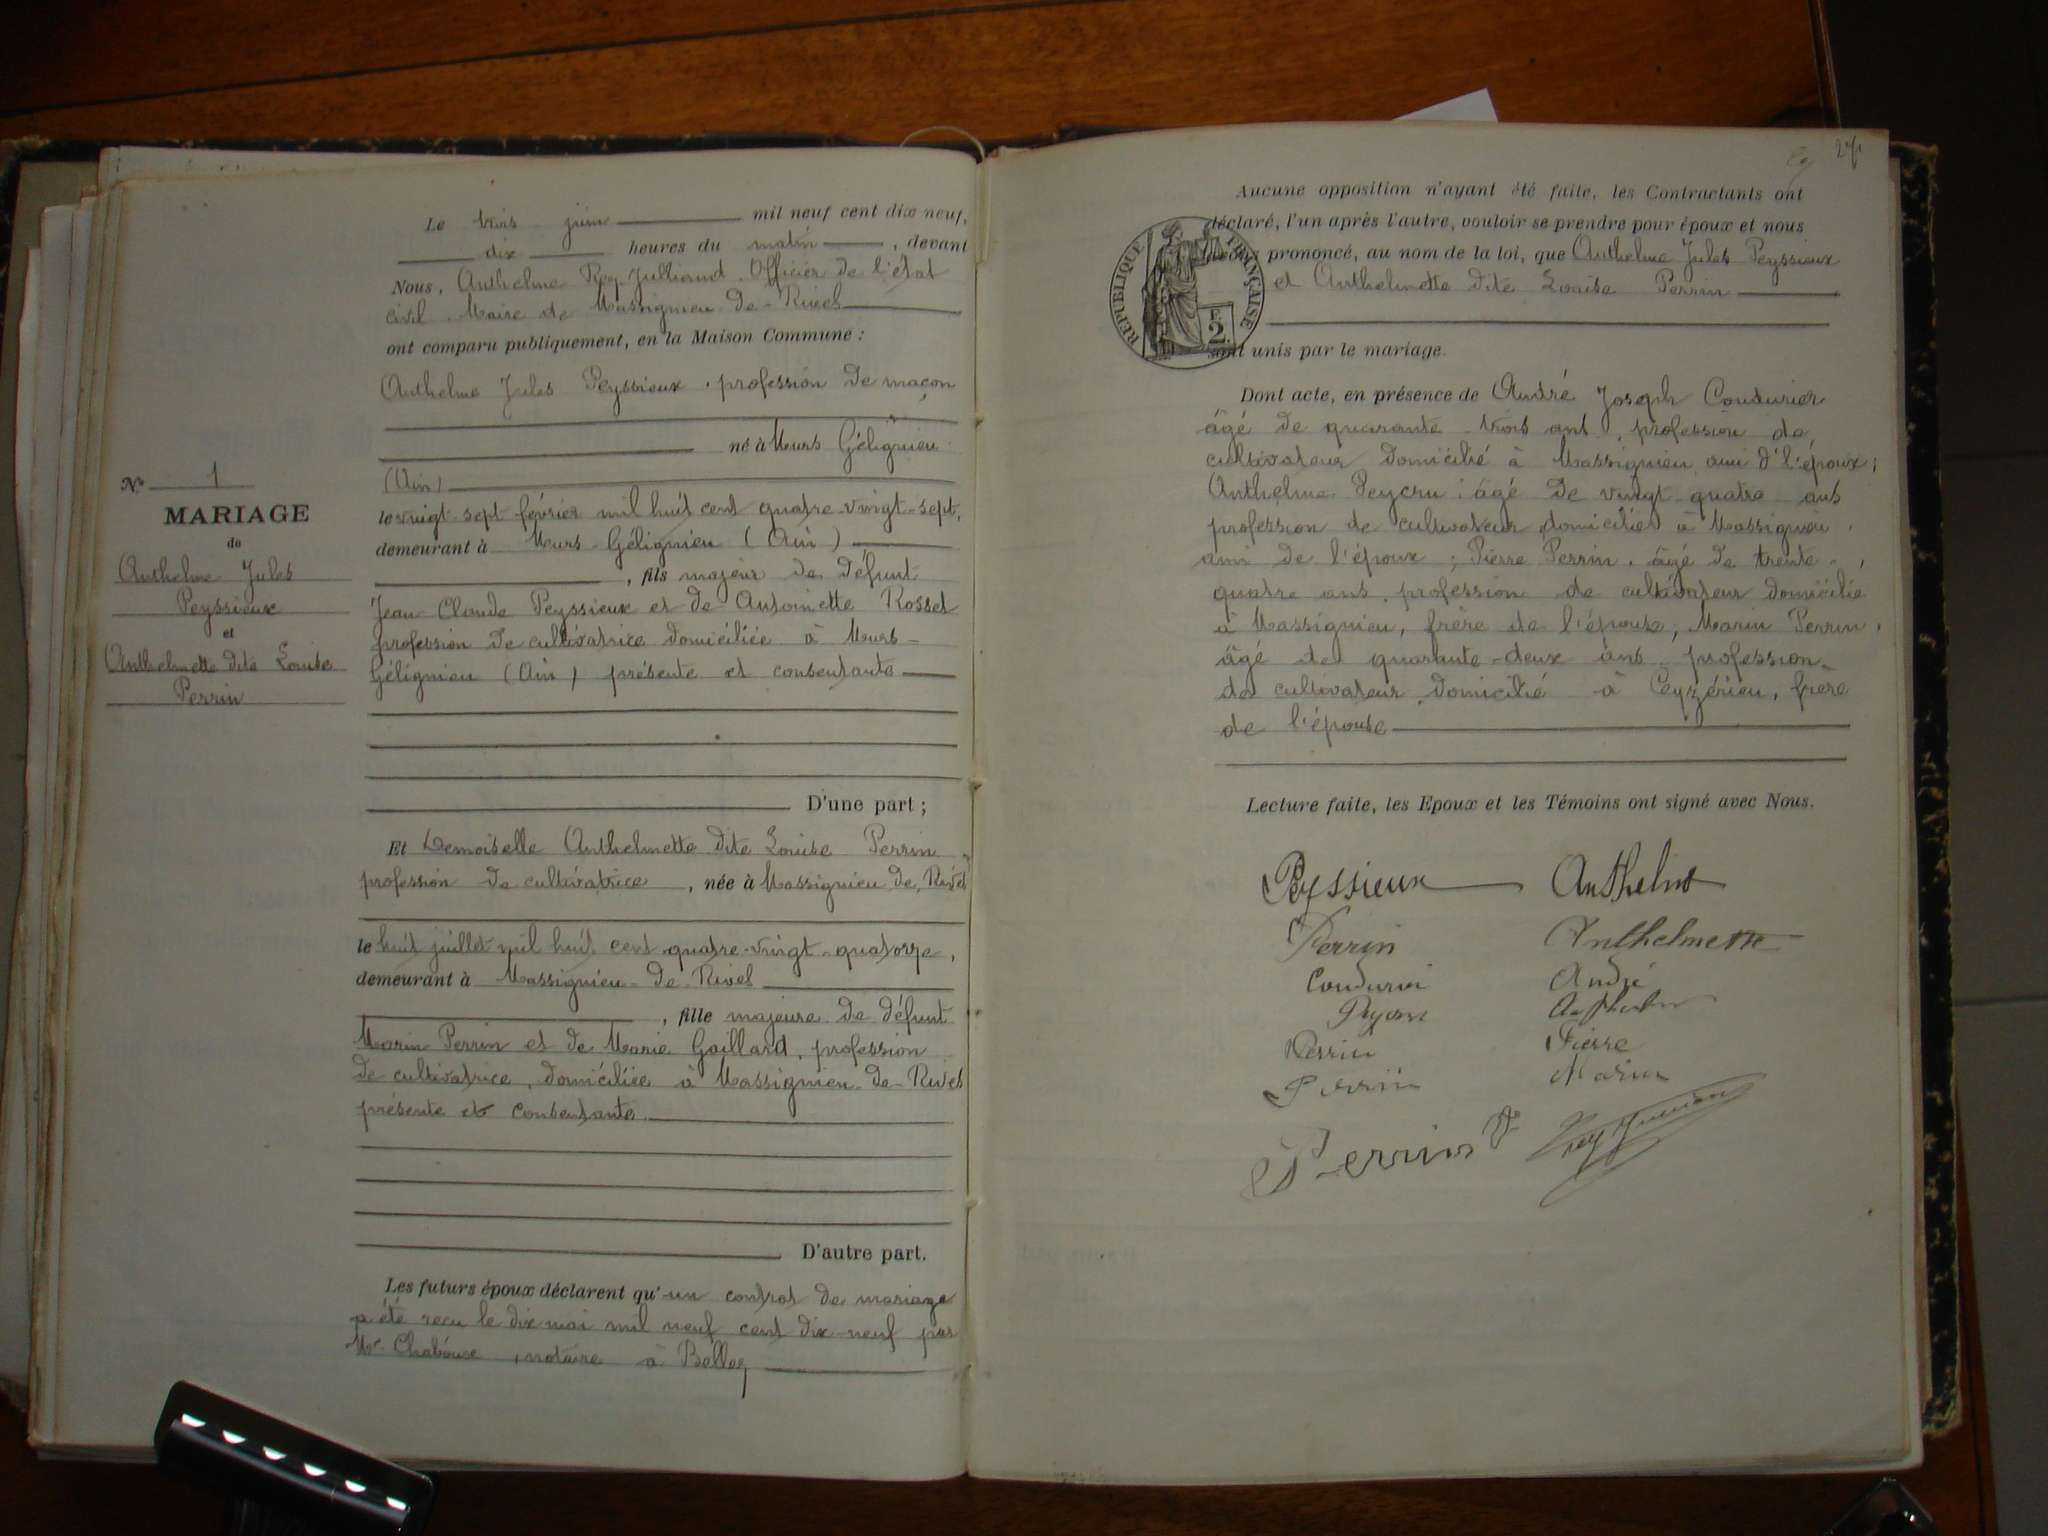 Le trois juin mil neuf cent dix neuf,
dix heures du matin, devant
Nous, Anthelme Rey Julliand Officier de l'état
civil Maire de Massignieu-De-Rives
ont comparu publiquement, en la Maison Commune :
Anthelme Jules Peyssieux, profession de maçon
né à Murs Gélignieu
(Ain)
le vingt-sept février mil huit cent quatre-vingt-sept,
demeurant à Murs-Gélignieu (Ain)
, fils majeur de défunt
Jean Claude Peyssieux et de Antoinette Rosset
profession de cultivatrice domiciliée à Murs-
Gélignieu (Ain) présente et consentante
D'une part ;
Et Demoiselle Anthelmette dite Louise Perrin
profession de cultivatrice, née à Massignieu de Rives
le huit juillet mil huit cent quatre-vingt-quatorze,
demeurant à Massignieu-de-Rives
, fille majeure de défunt
Marin Perrin et de Marie Gaillard, profession
de cultivatrice, domiciliée à Massignieu-de-Rives
présente et consentante
D'autre part.
Les futurs époux déclarent qu'un contrat de mariage
a été reçu le dix mai mil neuf cent dix-neuf par
Me, notaire à Belley
No 1
MARIAGE
de
Anthelme Jules
Peyssieux
et
Anthelmette dite Louise
Perrin
Aucune opposition n'ayant été faite, les Contractants ont
déclaré, l'un après l'autre, vouloir se prendre pour époux et nous
prononcé, au nom de la loi, que Anthelme Jules Peyssieux
et Anthelmette dite Louise Perrin
RÉPUBLIQUE FRANÇAISE
F. 2.
sont unis par le mariage.
Dont acte, en présence de André Joseph Coudurier
âgé de quarante-trois ans, profession de
cultivateur domicilié à Massignieu ami d'l'époux ;
Anthelme âgé de vingt-quatre ans
profession de cultivateur domicilié à Massignieu,
ami de l'époux ; Pierre Perrin, âgé de trente-
quatre ans, profession de cultivateur domicilié
à Massignieu, frère de l'épouse, Marin Perrin,
âgé de quarante-deux ans profession
de cultivateur domicilié à Ceyzérieu, frère
de l'épouse
Lecture faite, les Epoux et les Témoins ont signé avec Nous.
Peyssieux Anthelme
Perrin Anthelmette
André
Perrin Pierre
Perrin Marin
Perrin